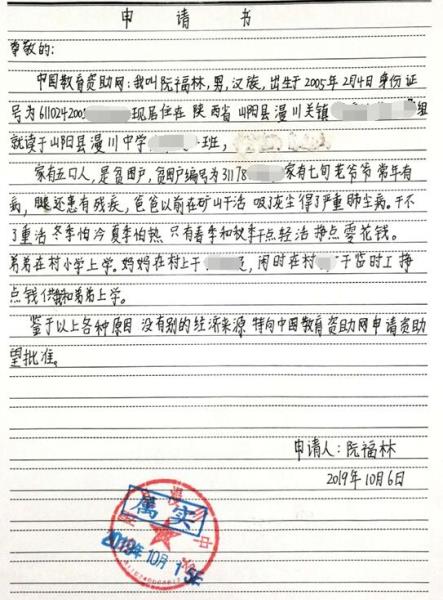 申请书
尊敬的:
中国教育资助网:我叫阮福林,男,汉族,出生于2005年2月4日身份证
号为6110242005 现居住在陕西省山阳县漫川关镇 组
就读于山阳县漫川中学 班,
家有五口人,是贫困户,贫困户编号为31178 家有七旬老爷爷常年有
病,腿还患有残疾,爸爸以前在矿山干活 吸了灰尘得了严重肺尘病。干不
了重活 冬季怕冷夏季怕热 只有春季和秋季干点轻活 挣点零花钱。
弟弟在村小学上学。妈妈在村上干 ,闲时在村 干临时工 挣
点钱供我和弟弟上学。
鉴于以上各种原因 没有别的经济来源 特向中国教育资助网申请资助
望批准。
申请人:阮福林
2019年10月6日
属实
2019年10月15日